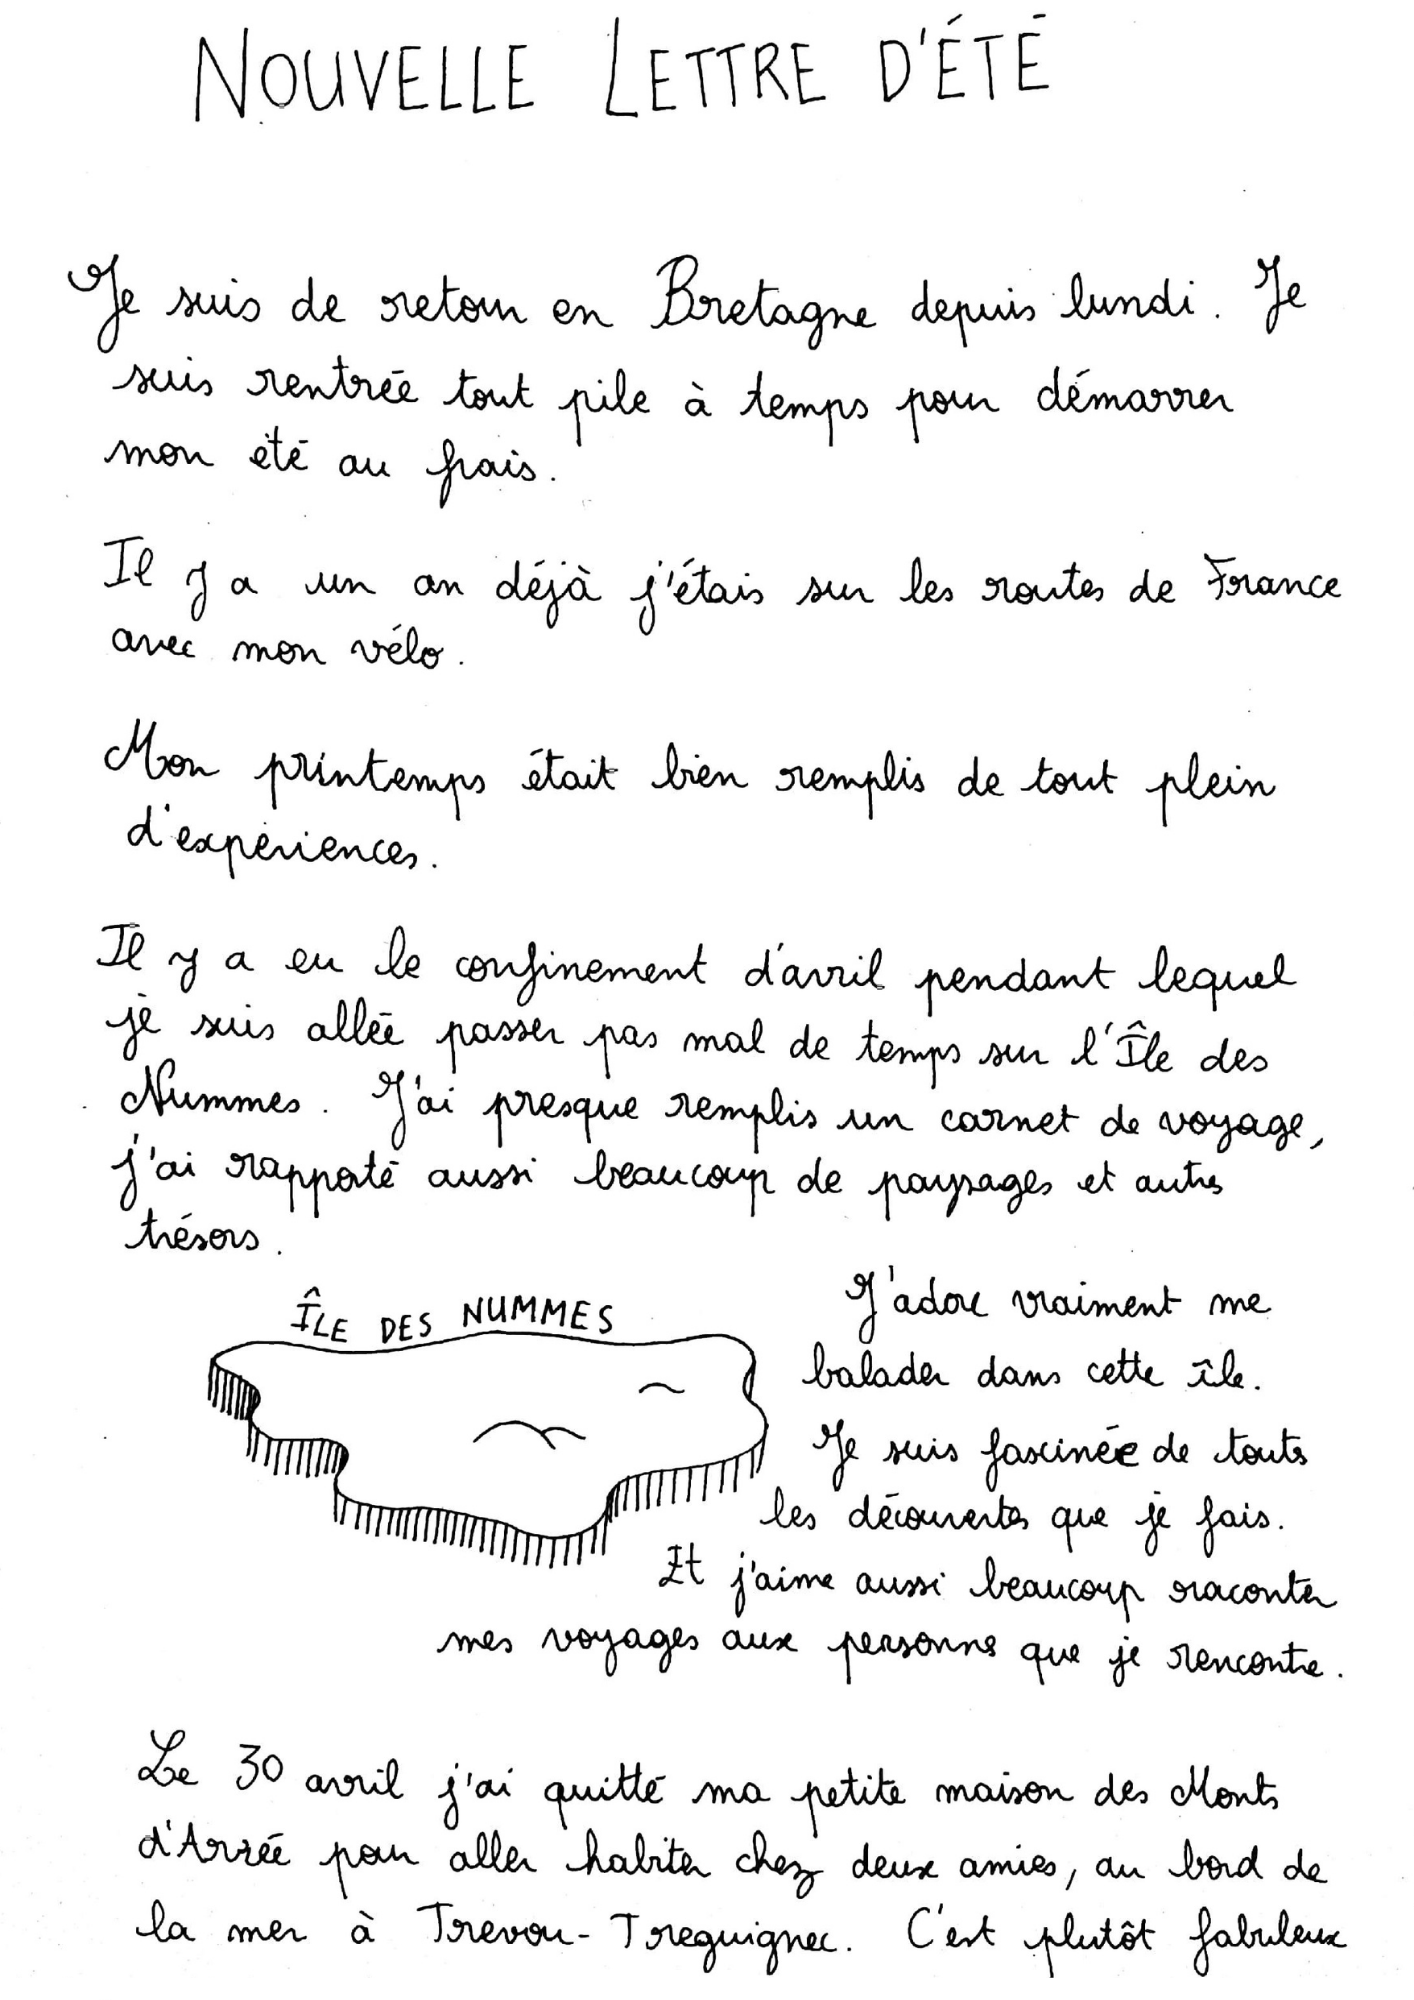 NOUVELLE LETTRE D'ÉTÉ
Je suis de retour en Bretagne depuis lundi. Je
suis rentrée tout pile à temps pour démarrer
mon été au frais.
Il y a un an déjà j'étais sur les routes de France
avec mon vélo.
Mon printemps était bien remplis de tout plein
d'expériences.
Il y a eu le confinement d'avril pendant lequel
je suis allée passer pas mal de temps sur l'Île des
Nummes. J'ai presque remplis un carnet de voyage,
j'ai rapporté aussi beaucoup de paysages et autres
trésors.
ÎLE DES NUMMES
J'adore vraiment me
balader dans cette île.
Je suis fascinée de toutes
les découvertes que je fais.
Et j'aime aussi beaucoup raconter
mes voyages aux personnes que je rencontre.
Le 30 avril j'ai quitté ma petite maison des Monts
d'Arrée pour aller habiter chez deux amies, au bord de
la mer à Trevou-Treguignec. C'est plutôt fabuleux